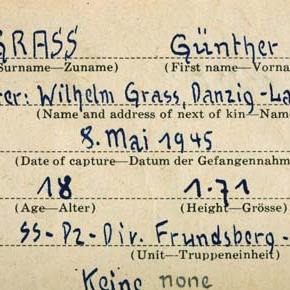 GRASS Günther
Surname—Zuname) (First name—Vorna
rer: Wilhelm Grass, Danzig-La
(Name and address of next of kin—Nam
8. Mai 1945
(Date of capture—Datum der Gefangennahm
18 1.71
(Age—Alter) (Height—Grösse)
SS-Pz-Div. Frundsberg-
(Unit—Truppeneinheit)
Keine none